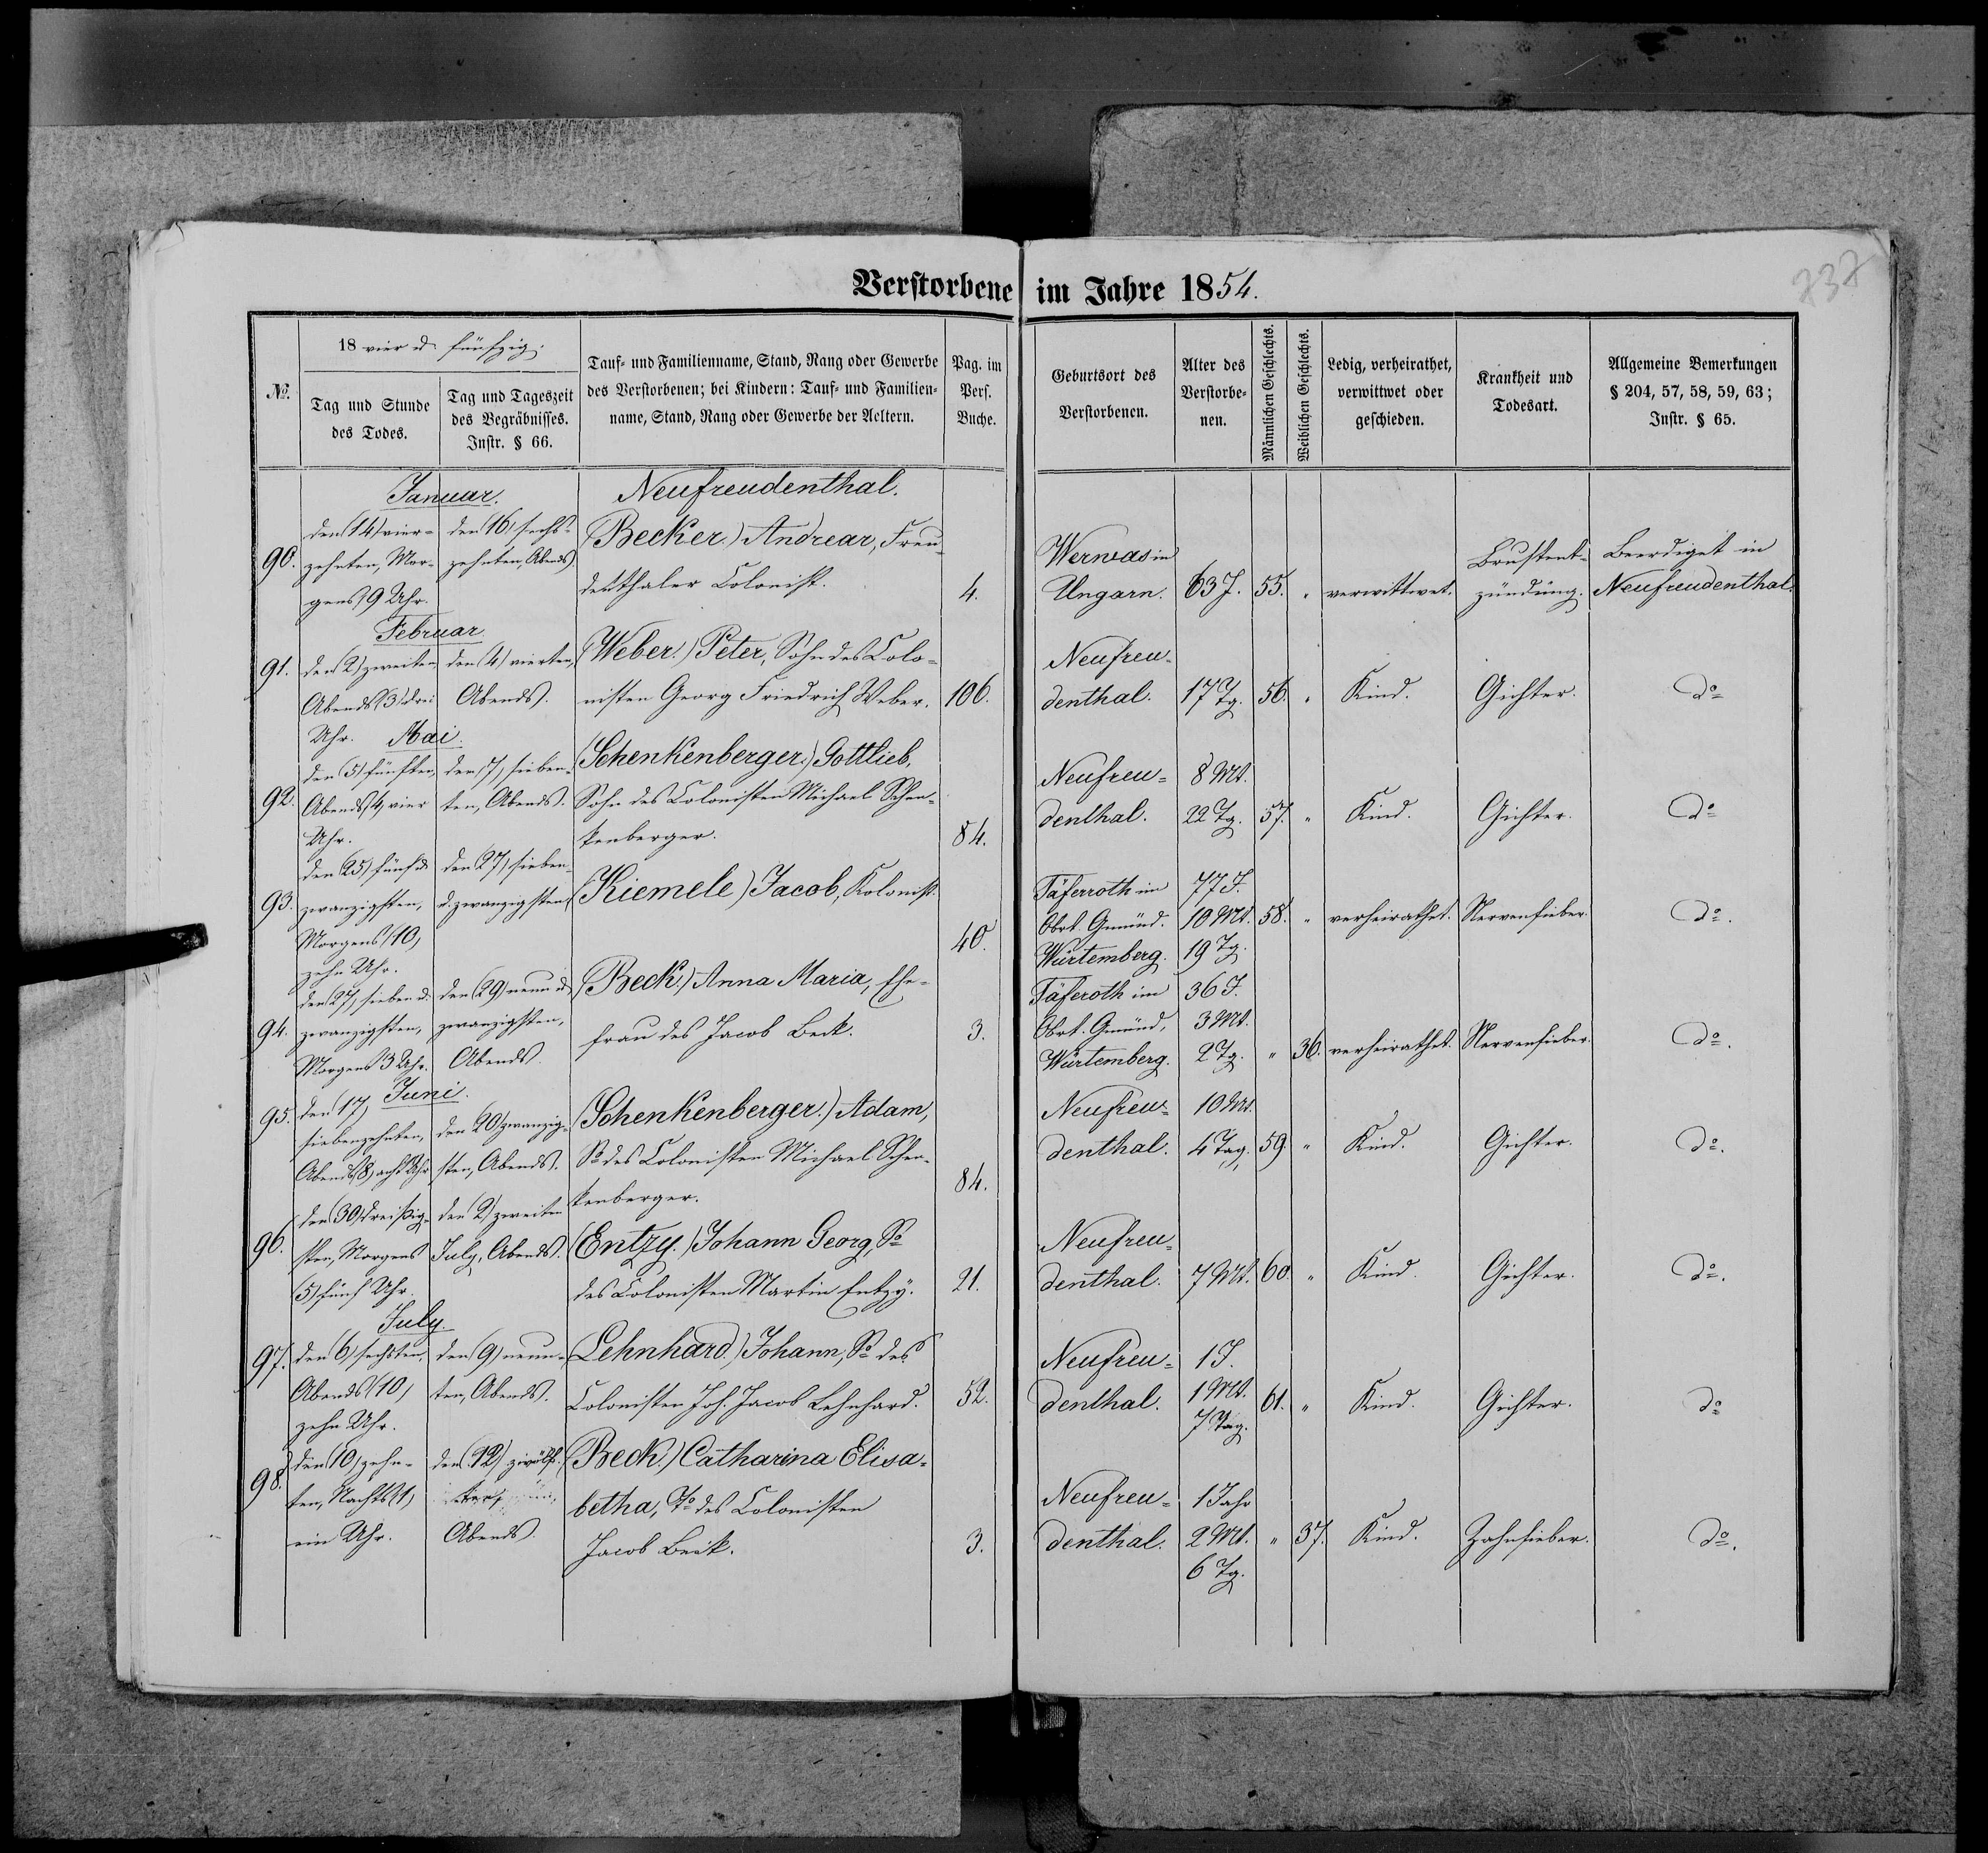 Verstorbene im Jahre 1854.
737
№.
18 vier u. fünfzig.
Tag und Stunde
des Todes.
Tag und Tageszeit
des Begräbnisses.
Instr. § 66.
Tauf- und Familienname, Stand, Rang oder Gewerbe
des Verstorbenen; bei Kindern: Tauf- und Familien-
name, Stand, Rang oder Gewerbe der Aeltern.
Pag. im
Pers.
Buche.
Geburtsort des
Verstorbenen.
Alter des
Verstorbe-
nen.
Männlichen Geschlechts.
Weiblichen Geschlechts.
Ledig, verheirathet,
verwittwet oder
geschieden.
Krankheit und
Todesart.
Allgemeine Bemerkungen
§ 204, 57, 58, 59, 63;
Instr. § 65.
Januar.
Neufreudenthal.
90.
den (14) vier-
zehnten, Mor-
gens 9 Uhr.
den 16) sechs-
zehnten, Abends
(Becker.) Andrear, Freu-
denthaler Colonist.
4.
Werwas in
Ungarn.
63 J.
55.
"
verwittwet.
Brustent-
zündung.
Beerdiget in
Neufreudenthal.
Februar.
91.
den (2) zweiten,
Abends (3) drei
Uhr.
den (4) vierten,
Abends.
(Weber.) Peter, Sohn des Colo-
nisten Georg Friedrich Weber.
106.
Neufreu-
denthal.
17 Tg.
56.
"
Kind.
Gichter.
do
Mai.
92.
den (5) fünften,
Abends (4) vier
Uhr.
den (7) sieben-
ten, Abends.
(Schenkenberger.) Gottlieb,
Sohn des Colonisten Michael Schen-
kenberger.
84.
Neufreu-
denthal.
8 Mt.
22 Tg.
57.
"
Kind.
Gichter.
do
93.
den (25) fünf u.
zwanzigsten,
Morgens (10)
zehn Uhr.
den (27) sieben
u. zwanzigsten
(Kiemele) Jacob, Kolonist.
40.
Täferroth im
Obrt. Gmünd.
Würtemberg.
77 J.
10 Mt.
19 Tg.
58.
"
verheirathet.
Nervenfieber.
do.
94.
den (27) sieben u.
zwanzigsten,
Morgens 3 Uhr.
den (29) neun u.
zwanzigsten,
Abends.
(Beck.) Anna Maria, Ehe-
frau des Jacob Beck.
3.
Täferoth im
Obrt. Gmünd,
Würtemberg.
36 J.
3 Mt.
2 Tg.
"
36.
verheirathet.
Nervenfieber.
do.
Juni.
95.
den 17)
siebenzehnten,
Abends (8) acht Uhr
den (20) zwanzig-
sten, Abends.
(Schenkenberger.) Adam,
So des Colonisten Michael Schen-
kenberger.
84.
Neufreu-
denthal.
10 Mt.
4 Tag.
59.
"
Kind.
Gichter.
do.
96.
den (30) dreißig-
sten, Morgens
(5) fünf Uhr.
den (2) zweiten
July, Abends.
(Entzy.) Johann Georg, So
des Colonisten Martin Entzy.
21.
Neufreu-
denthal.
7 Mt.
60.
"
Kind.
Gichter.
do.
July.
97.
den (6) sechsten,
Abends (10)
zehn Uhr.
den (9) neun-
ten, Abends.
(Lehnhard.) Johann, So des
Colonisten Joh. Jacob Lehnhard.
52.
Neufreu-
denthal.
1 J.
1 Mt.
7 Tag.
61.
"
Kind.
Gichter.
do
98.
den (10) zehn-
ten, Nachts (1)
ein Uhr.
den (12) zwölf-
ten,
Abends.
(Beck.) Catharina Elisa-
betha, To des Colonisten
Jacob Beck.
3.
Neufreu-
denthal.
1 Jahr
2 Mt.
6 Tg.
"
37.
Kind.
Zahnfieber.
do.